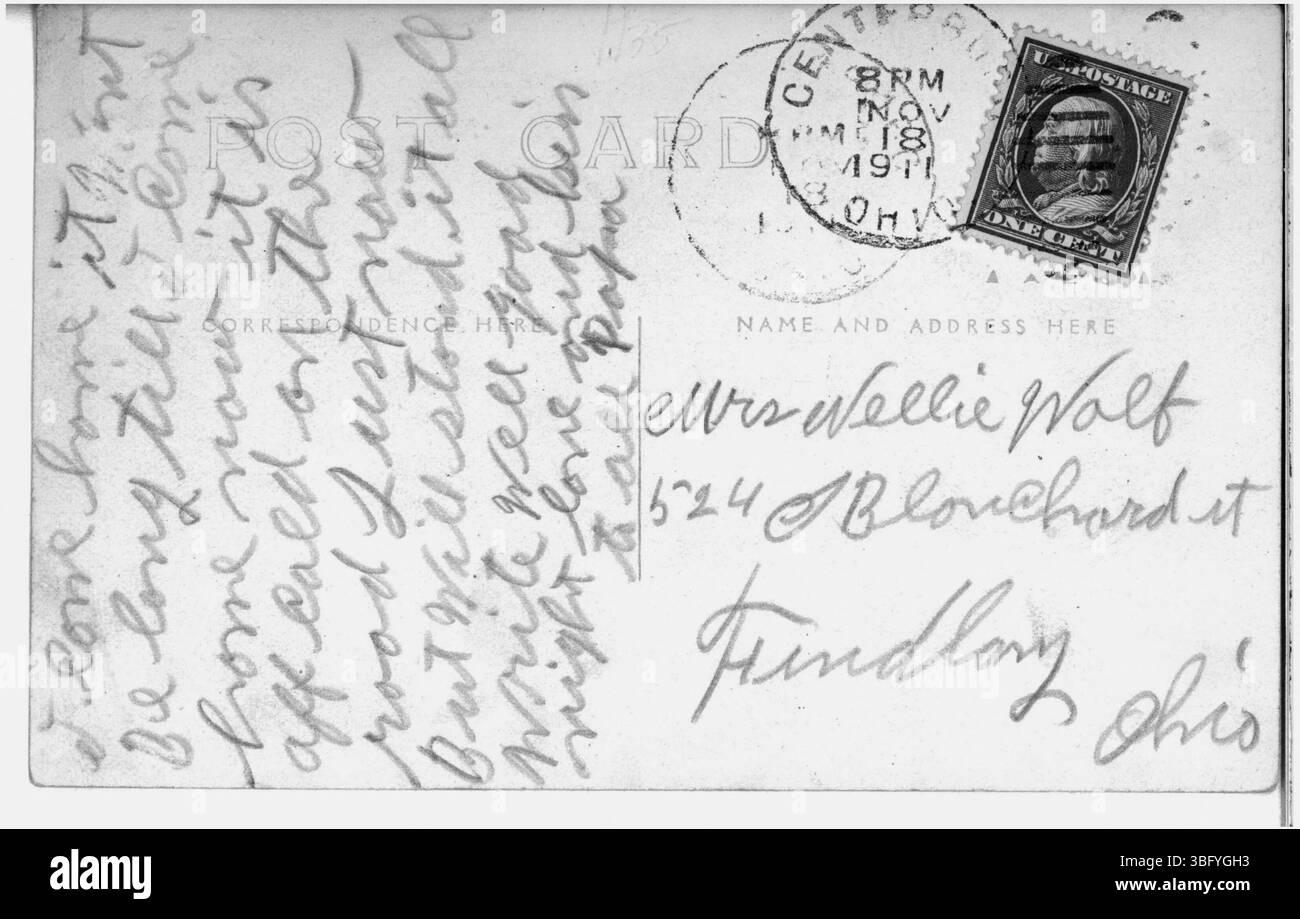 I come home it Wont
Be long till I Come
home now it is
aff cald on the
road Just now
But Will stand it all
Write Well good
night love and kiss
to all Papa
POST CARD
CORRESPONDENCE HERE
NAME AND ADDRESS HERE
CENTERBU
8 PM
NOV
18
1911
OHIO
U.S. POSTAGE
ONE CENT
Mrs Nellie Wolf
524 S Blanchard st
Findlay
Ohio
alamy
Image ID: 3BFYGH3
www.alamy.com